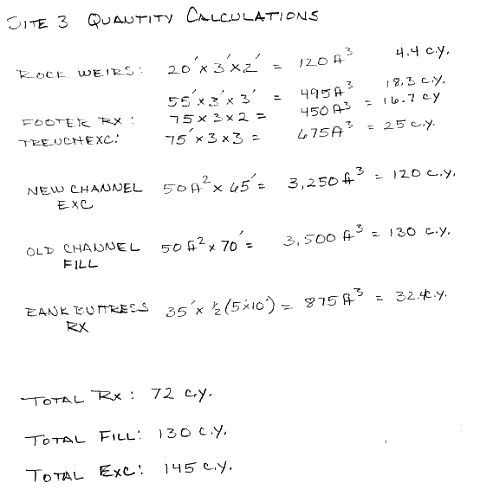 SITE 3 QUANTITY CALCULATIONS
ROCK WEIRS: 20' x 3' x 2' = 120 ft³ 4.4 c.y.
55' x 3' x 3' = 495 ft³ 18.3 c.y.
FOOTER RX: 75 x 3 x 2 = 450 ft³ = 16.7 cy
TRENCH EXC: 75' x 3 x 3 = 675 ft³ = 25 c.y.
NEW CHANNEL 50 ft² x 65' = 3,250 ft³ = 120 c.y.
EXC
OLD CHANNEL 50 ft² x 70' = 3,500 ft³ = 130 c.y.
FILL
BANK BUTTRESS 35' x ½ (5' x 10') = 875 ft³ = 32.4 c.y.
RX
TOTAL RX: 72 c.y.
TOTAL FILL: 130 c.y.
TOTAL EXC: 145 c.y.